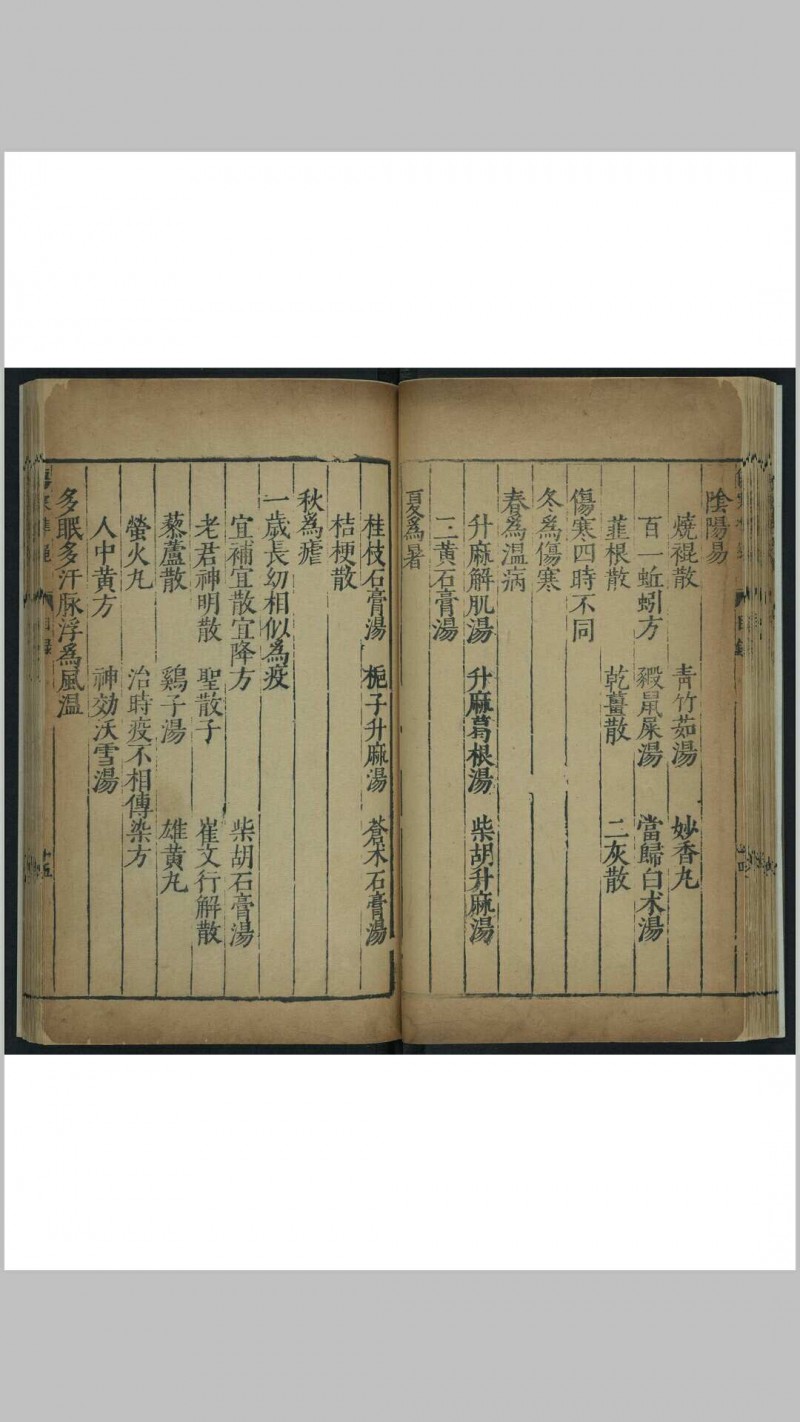 陰陽易
燒裩散 青竹茹湯 妙香丸
百一蚯蚓方 豭鼠屎湯 當歸白朮湯
韮根散 乾薑散 二灰散
傷寒四時不同
冬爲傷寒
春爲温病
升麻解肌湯 升麻葛根湯 柴胡升麻湯
三黃石膏湯
夏爲暑
桂枝石膏湯 梔子升麻湯 蒼朮石膏湯
桔梗散
秋爲瘧
一歲長幼相似爲疫
宜補宜散宜降方 柴胡石膏湯
老君神明散 聖散子 崔文行解散
藜蘆散 鷄子湯 雄黃丸
螢火丸 治時疫不相傳染方
人中黃方 神効沃雪湯
多眠多汗脉浮爲風温